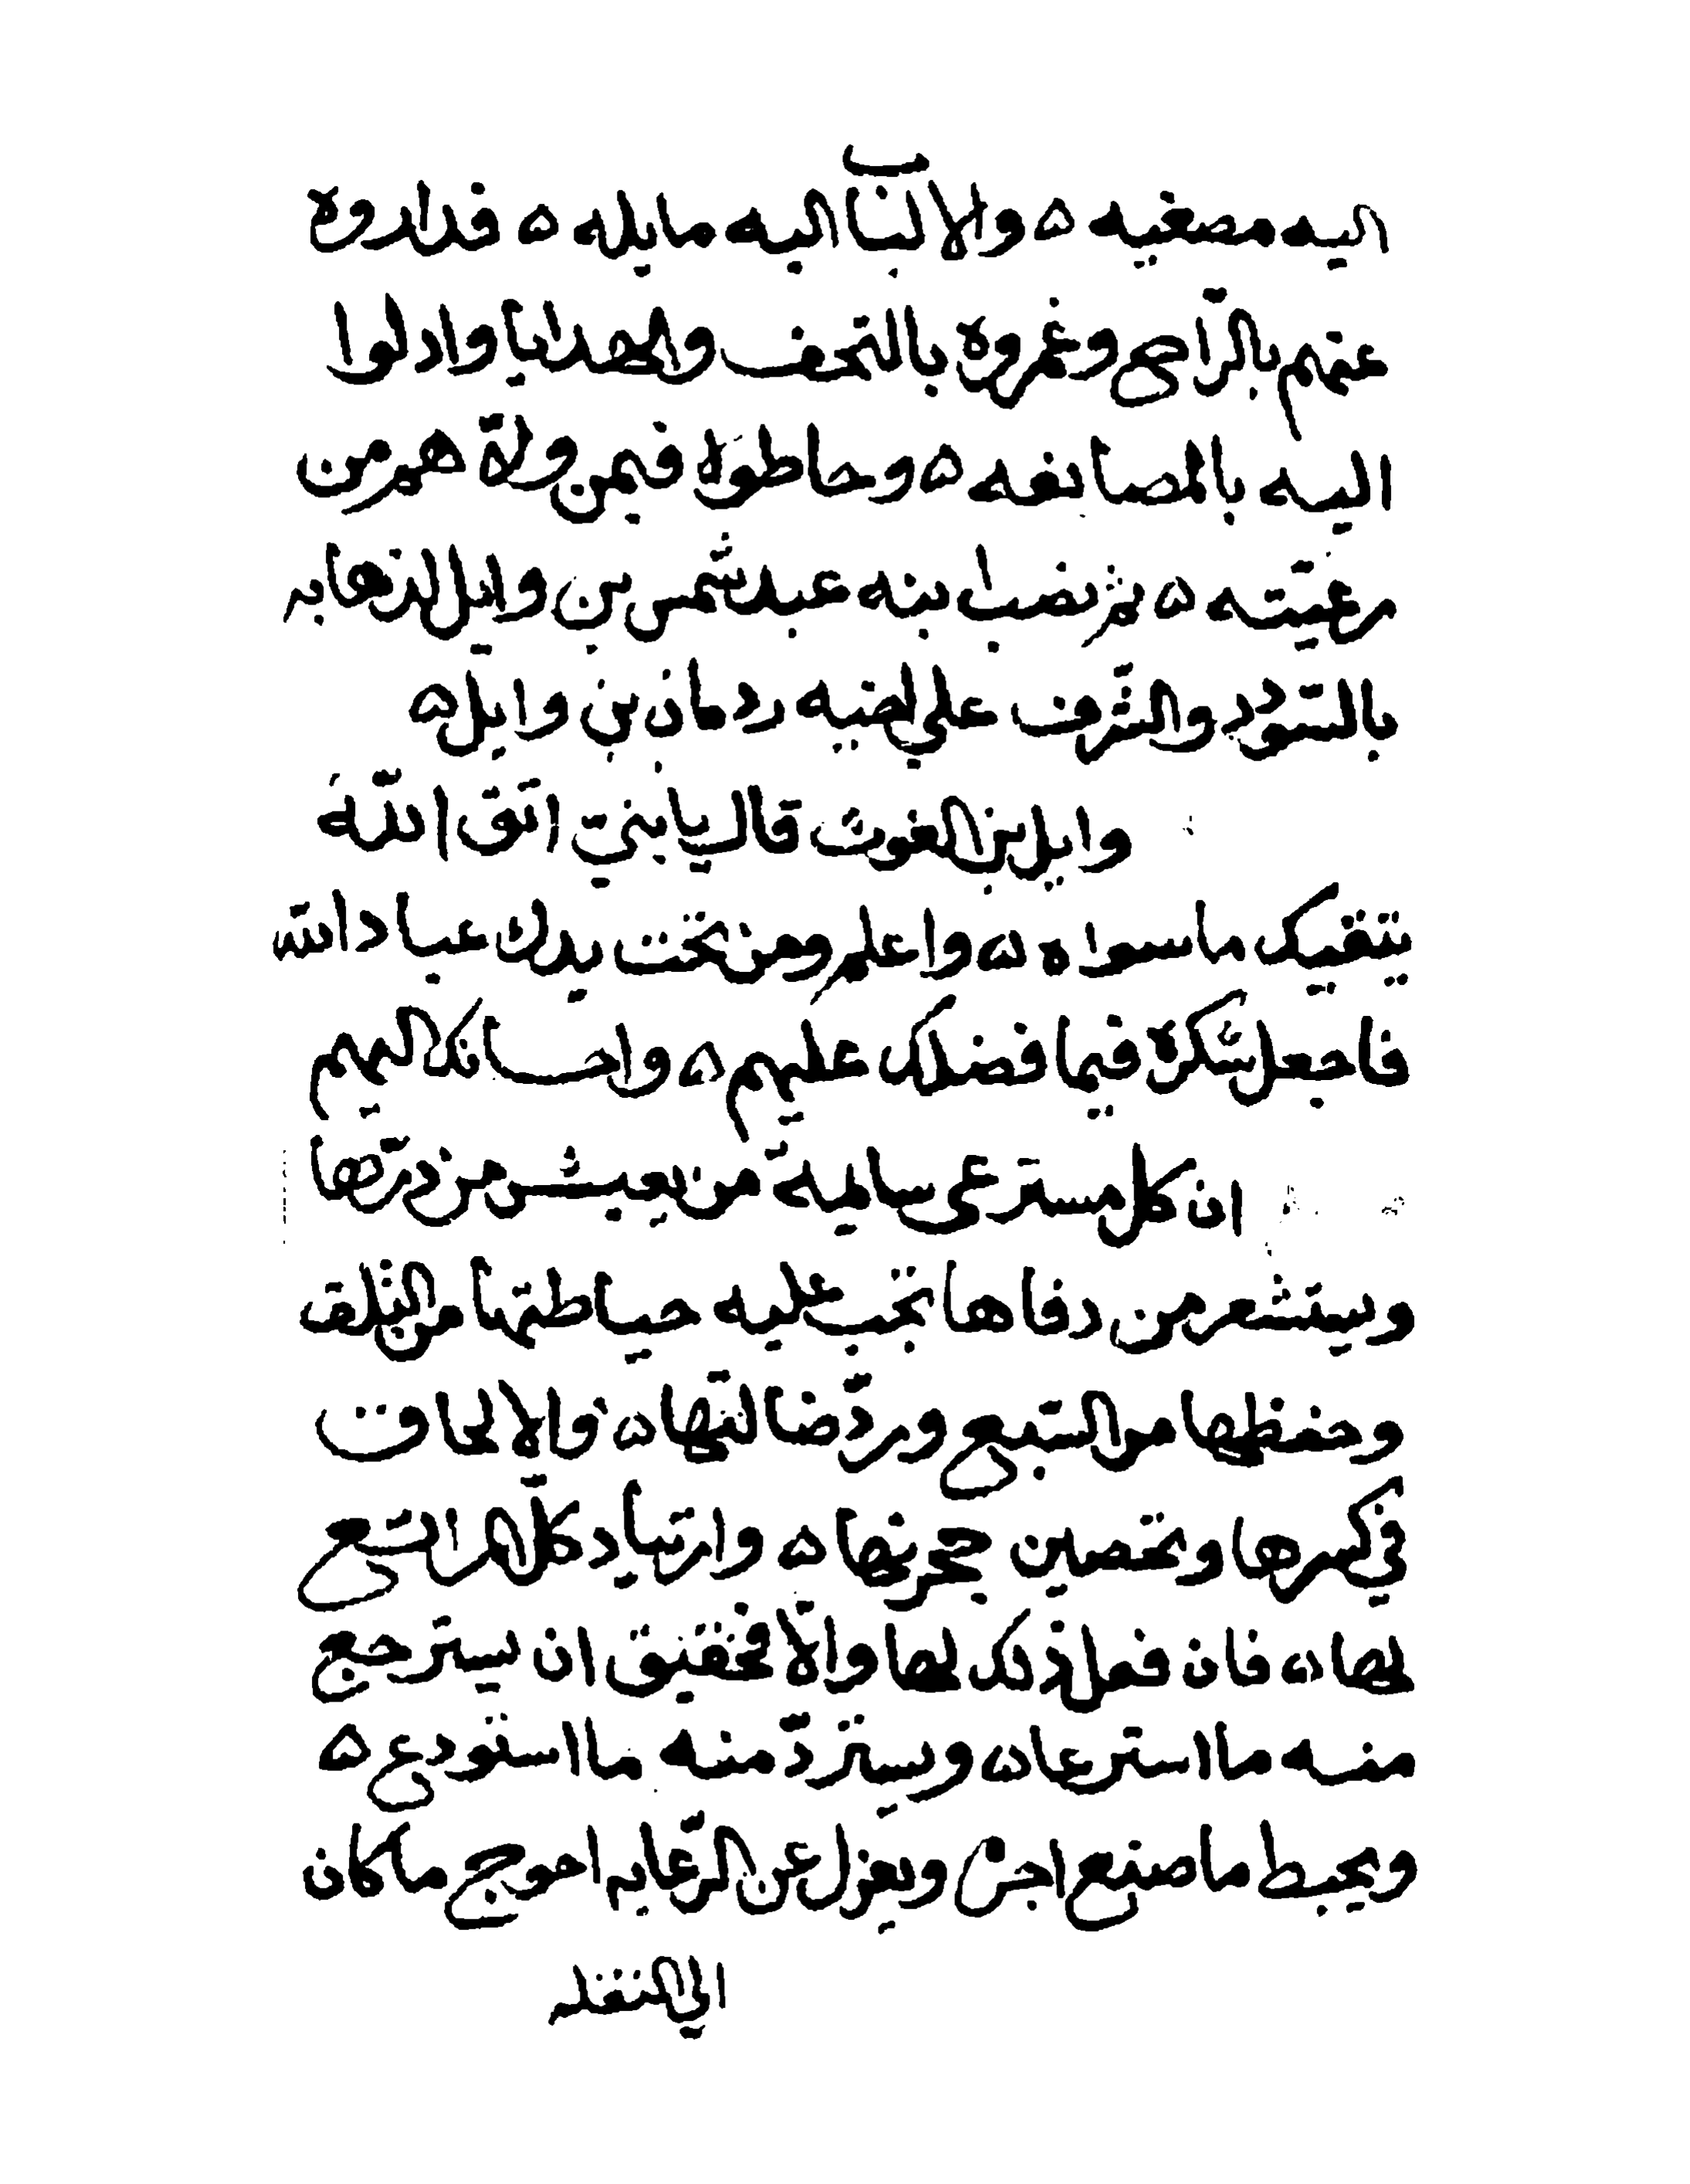 اليه مصغيه ه والالباب اليه مايله ه فداروه
عنهم بالراح وغمروه بالتحف والهدايا وادلوا
اليه بالمصانعه ه وحاطوه فيمن ولاه هم من
رعيّته ه ثم نصب ابنه عبد شمس بن وايل لذهابه
بالسّودد والشّرف علي اخيه ردمان بن وايل ه
وايل بن الغوث قال يا بنيّ اتق اللّه
يتقيك ما سواه ه واعلم ومن تحت يدك عباد الله
فاجعل شكره فيما فضلك عليهم ه واحسانك اليهم
ان كل مسترعى سايمة من يعيش من درّها
ويستشعر من دفاها تجب عليه حياطتها من التلف
وحفظها من السّبع وردّ ضالتها ه والالحاف
في كسرها وتحصين حجرتها ه وارتياد كلّ المراتع
لها ه فان فعل ذلك لها والّا فحقيق ان يسترجع
منه ما استرعاه ويستردّ منه ما استودع ه
ويحبط ما صنع اجره ويعزل عن الرّعايه احوج ما كان
الي